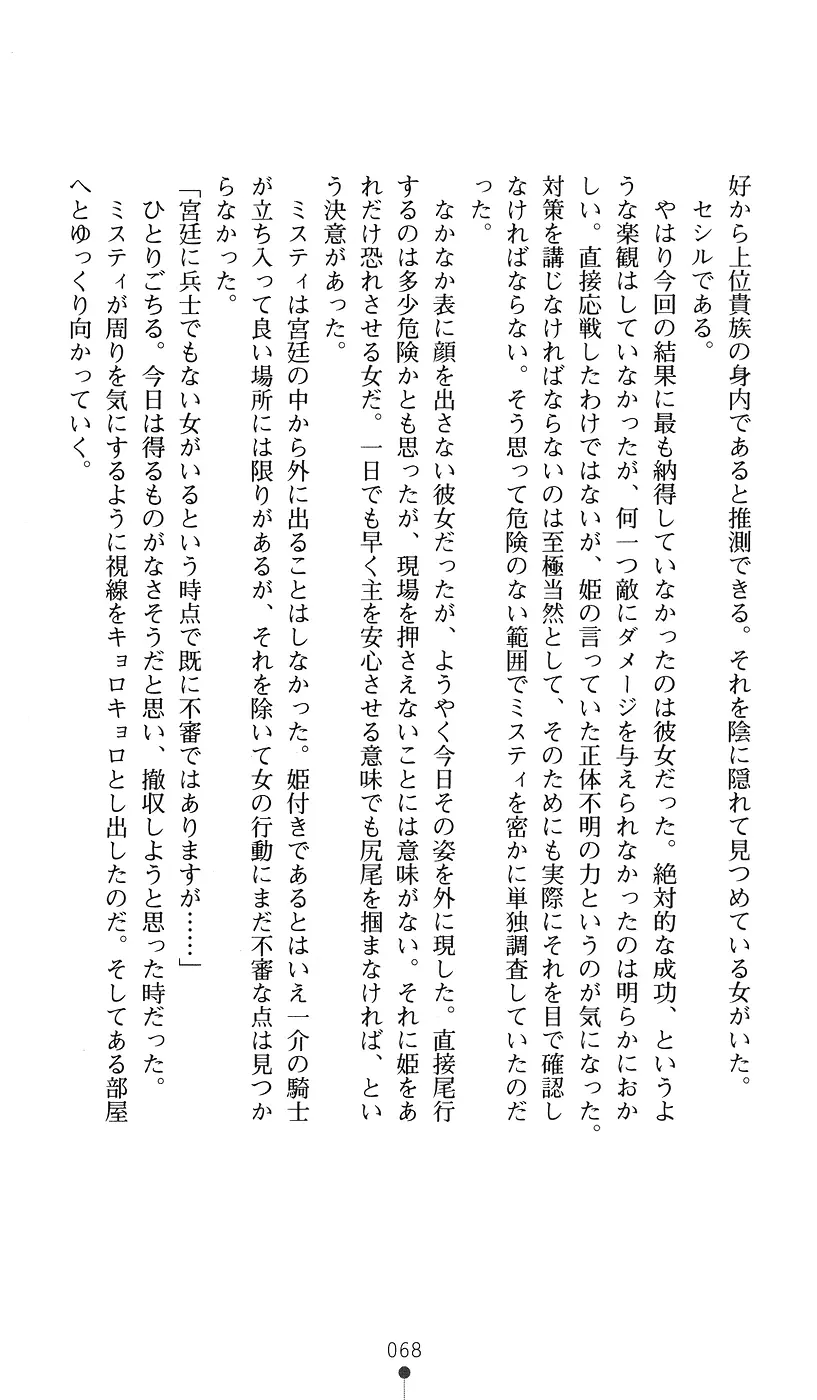 好から上位貴族の身内であると推測できる。それを陰に隠れて見つめている女がいた。
セシルである。
やはり今回の結果に最も納得していなかったのは彼女だった。絶対的な成功、というよ
うな楽観はしていなかったが、何一つ敵にダメージを与えられなかったのは明らかにおか
しい。直接応戦したわけではないが、姫の言っていた正体不明の力というのが気になった。
対策を講じなければならないのは至極当然として、そのためにも実際にそれを目で確認し
なければならない。そう思って危険のない範囲でミスティを密かに単独調査していたのだ
った。
なかなか表に顔を出さない彼女だったが、ようやく今日その姿を外に現した。直接尾行
するのは多少危険かとも思ったが、現場を押さえないことには意味がない。それに姫をあ
れだけ恐れさせる女だ。一日でも早く主を安心させる意味でも尻尾を掴まなければ、とい
う決意があった。
ミスティは宮廷の中から外に出ることはしなかった。姫付きであるとはいえ一介の騎士
が立ち入って良い場所には限りがあるが、それを除いて女の行動にまだ不審な点は見つか
らなかった。
「宮廷に兵士でもない女がいるという時点で既に不審ではありますが……」
ひとりごちる。今日は得るものがなさそうだと思い、撤収しようと思った時だった。
ミスティが周りを気にするように視線をキョロキョロとし出したのだ。そしてある部屋
へとゆっくり向かっていく。
068